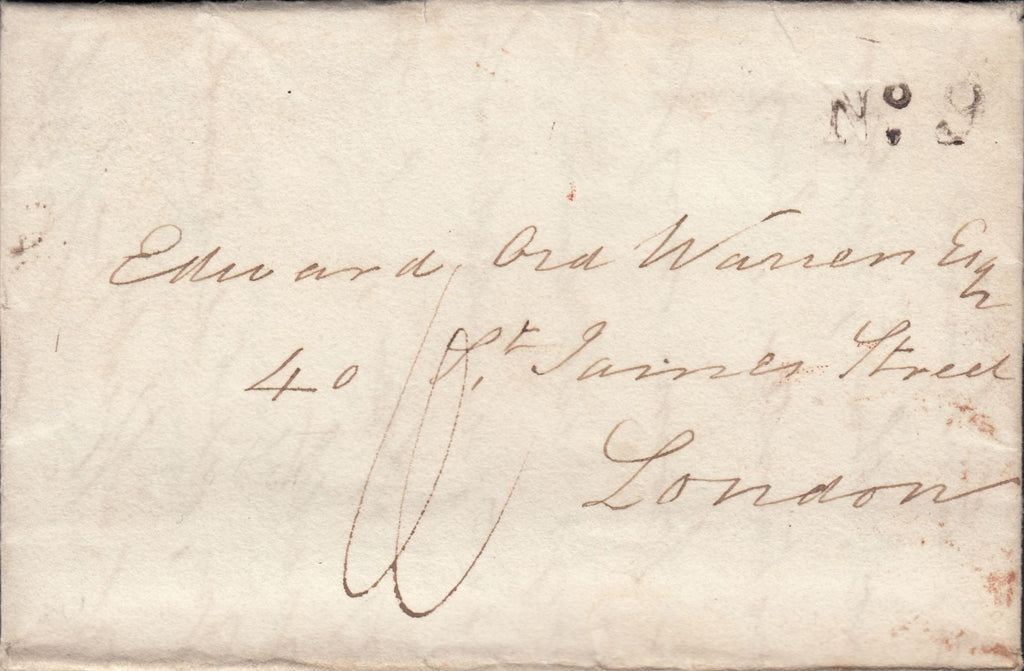 No. 9
Edward Ord Warren Esq
40 St. James Street
London